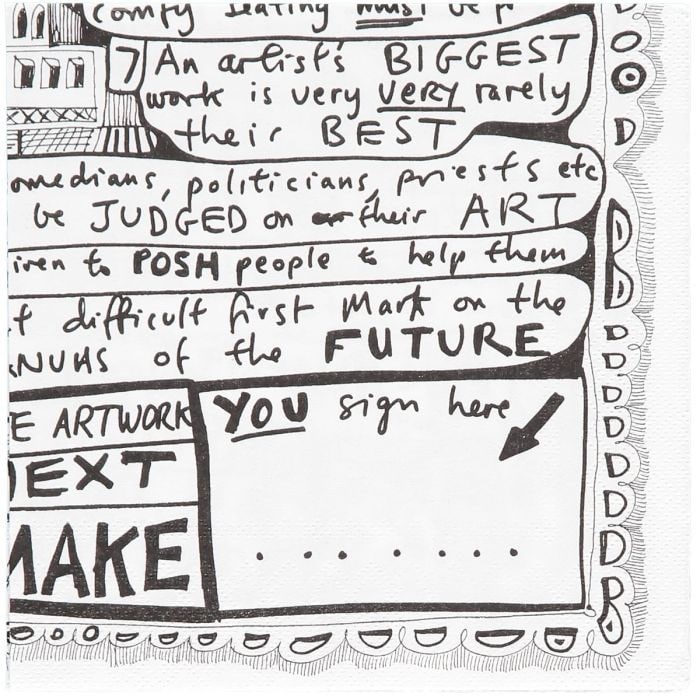 comfy seating must be p
7 An artist's BIGGEST
work is very VERY rarely
their BEST
omedians, politicians, priests etc
be JUDGED on their ART
iven to POSH people to help them
t difficult first Mark on the
NUHS of the FUTURE
E ARTWORK
NEXT
MAKE
YOU sign here